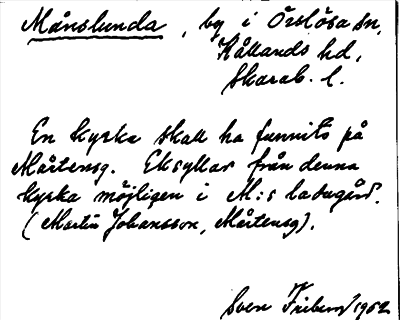 Månslunda, by i Örslösa sn,
Kållands hd,
Skarab. l.
En kyrka skall ha funnits på
Mårtensg. Eksyllar från denna
kyrka möjligen i M:s ladugård.
(Martin Johansson, Mårtensg).
Sven Friberg 1952